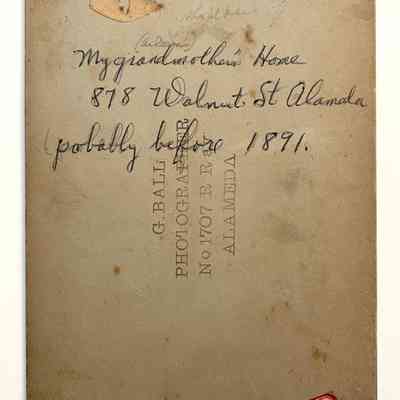 My grandmother's Home
878 Walnut St Alameda
pobably before 1891.
G. BALL
PHOTOGRAPHER
No 1707 R.R. AV.
ALAMEDA